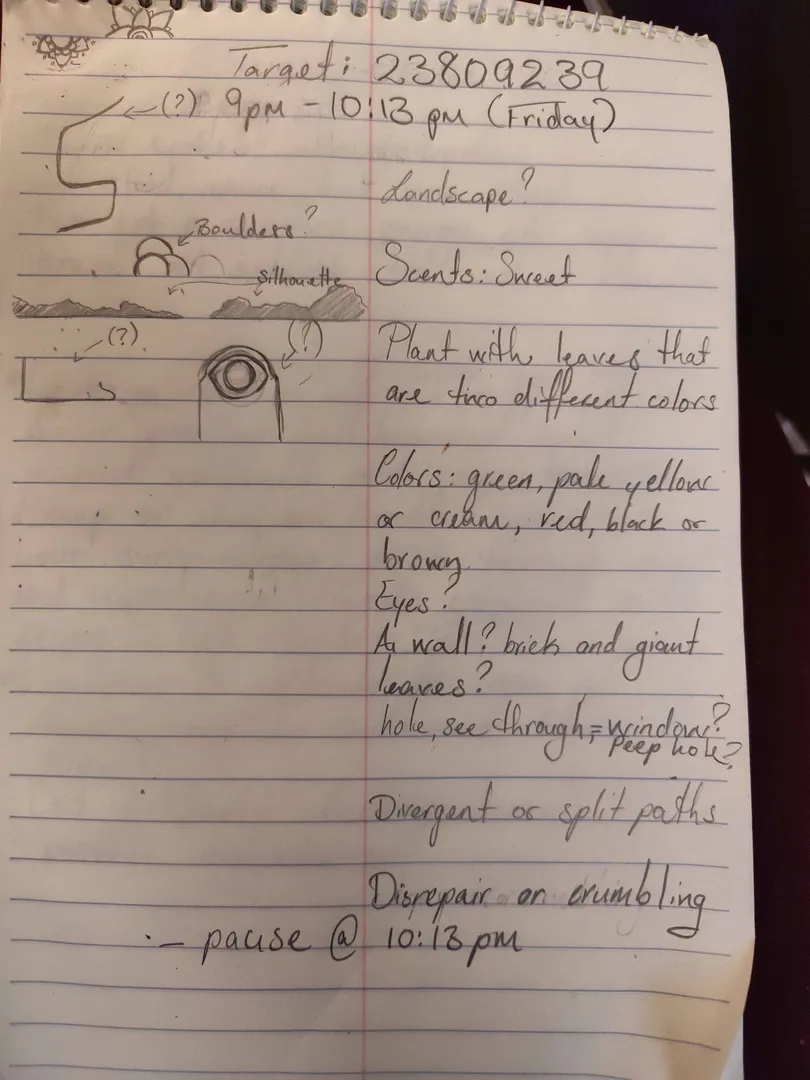 Target: 23809239
(?) 9pm - 10:13 pm (Friday)
Landscape?
Boulders?
Silhouette
Scents: Sweet
(?)
(?)
Plant with leaves that
are two different colors
Colors: green, pale yellow
or cream, red, black or
brown
Eyes?
A wall? brick and giant
leaves?
hole, see through, = window?
Peep hole?
Divergent or split paths
Disrepair or crumbling
- pause @ 10:13 pm